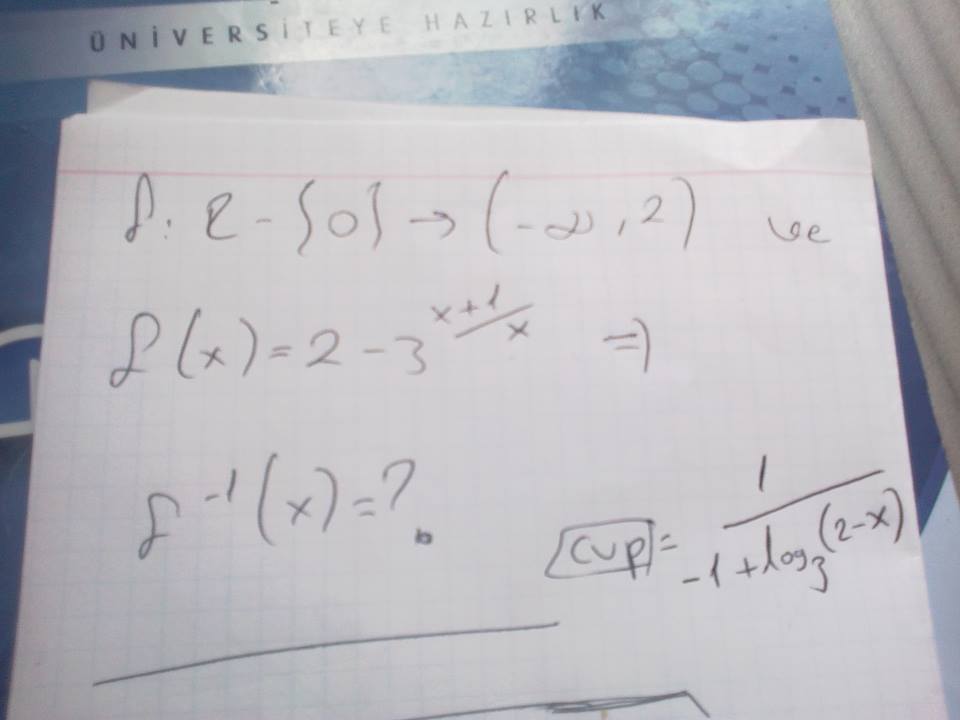 ÜNİVERSİTEYE HAZIRLIK
f: R - {0} → (-∞, 2) ve
f(x) = 2 - 3^{x+1/x} ⇒
f^{-1}(x) = ?
cvp = 1 / -1 + log₃(2-x)